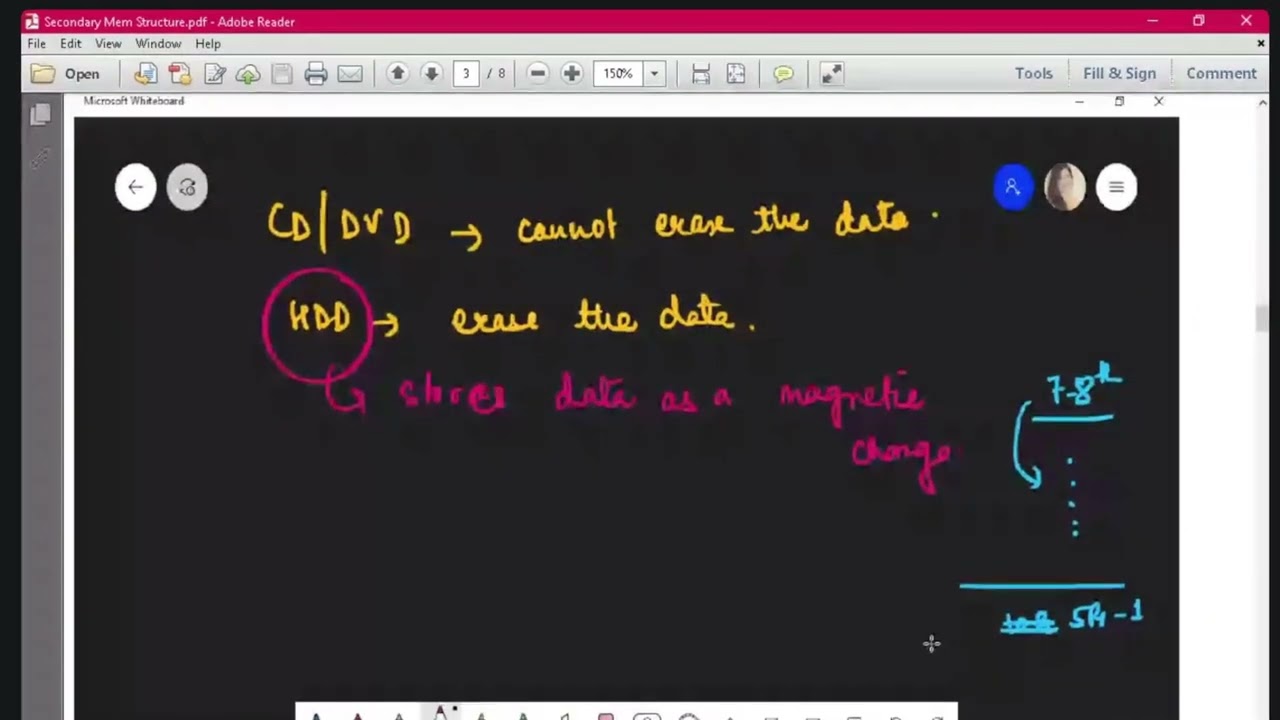 Secondary Mem Structure.pdf - Adobe Reader
File Edit View Window Help
Open 3 / 8 150% Tools Fill & Sign Comment
Microsoft Whiteboard
CD/DVD → cannot erase the data.
HDD → erase the data.
↳ stores data as a magnetic
change
7-8
-1